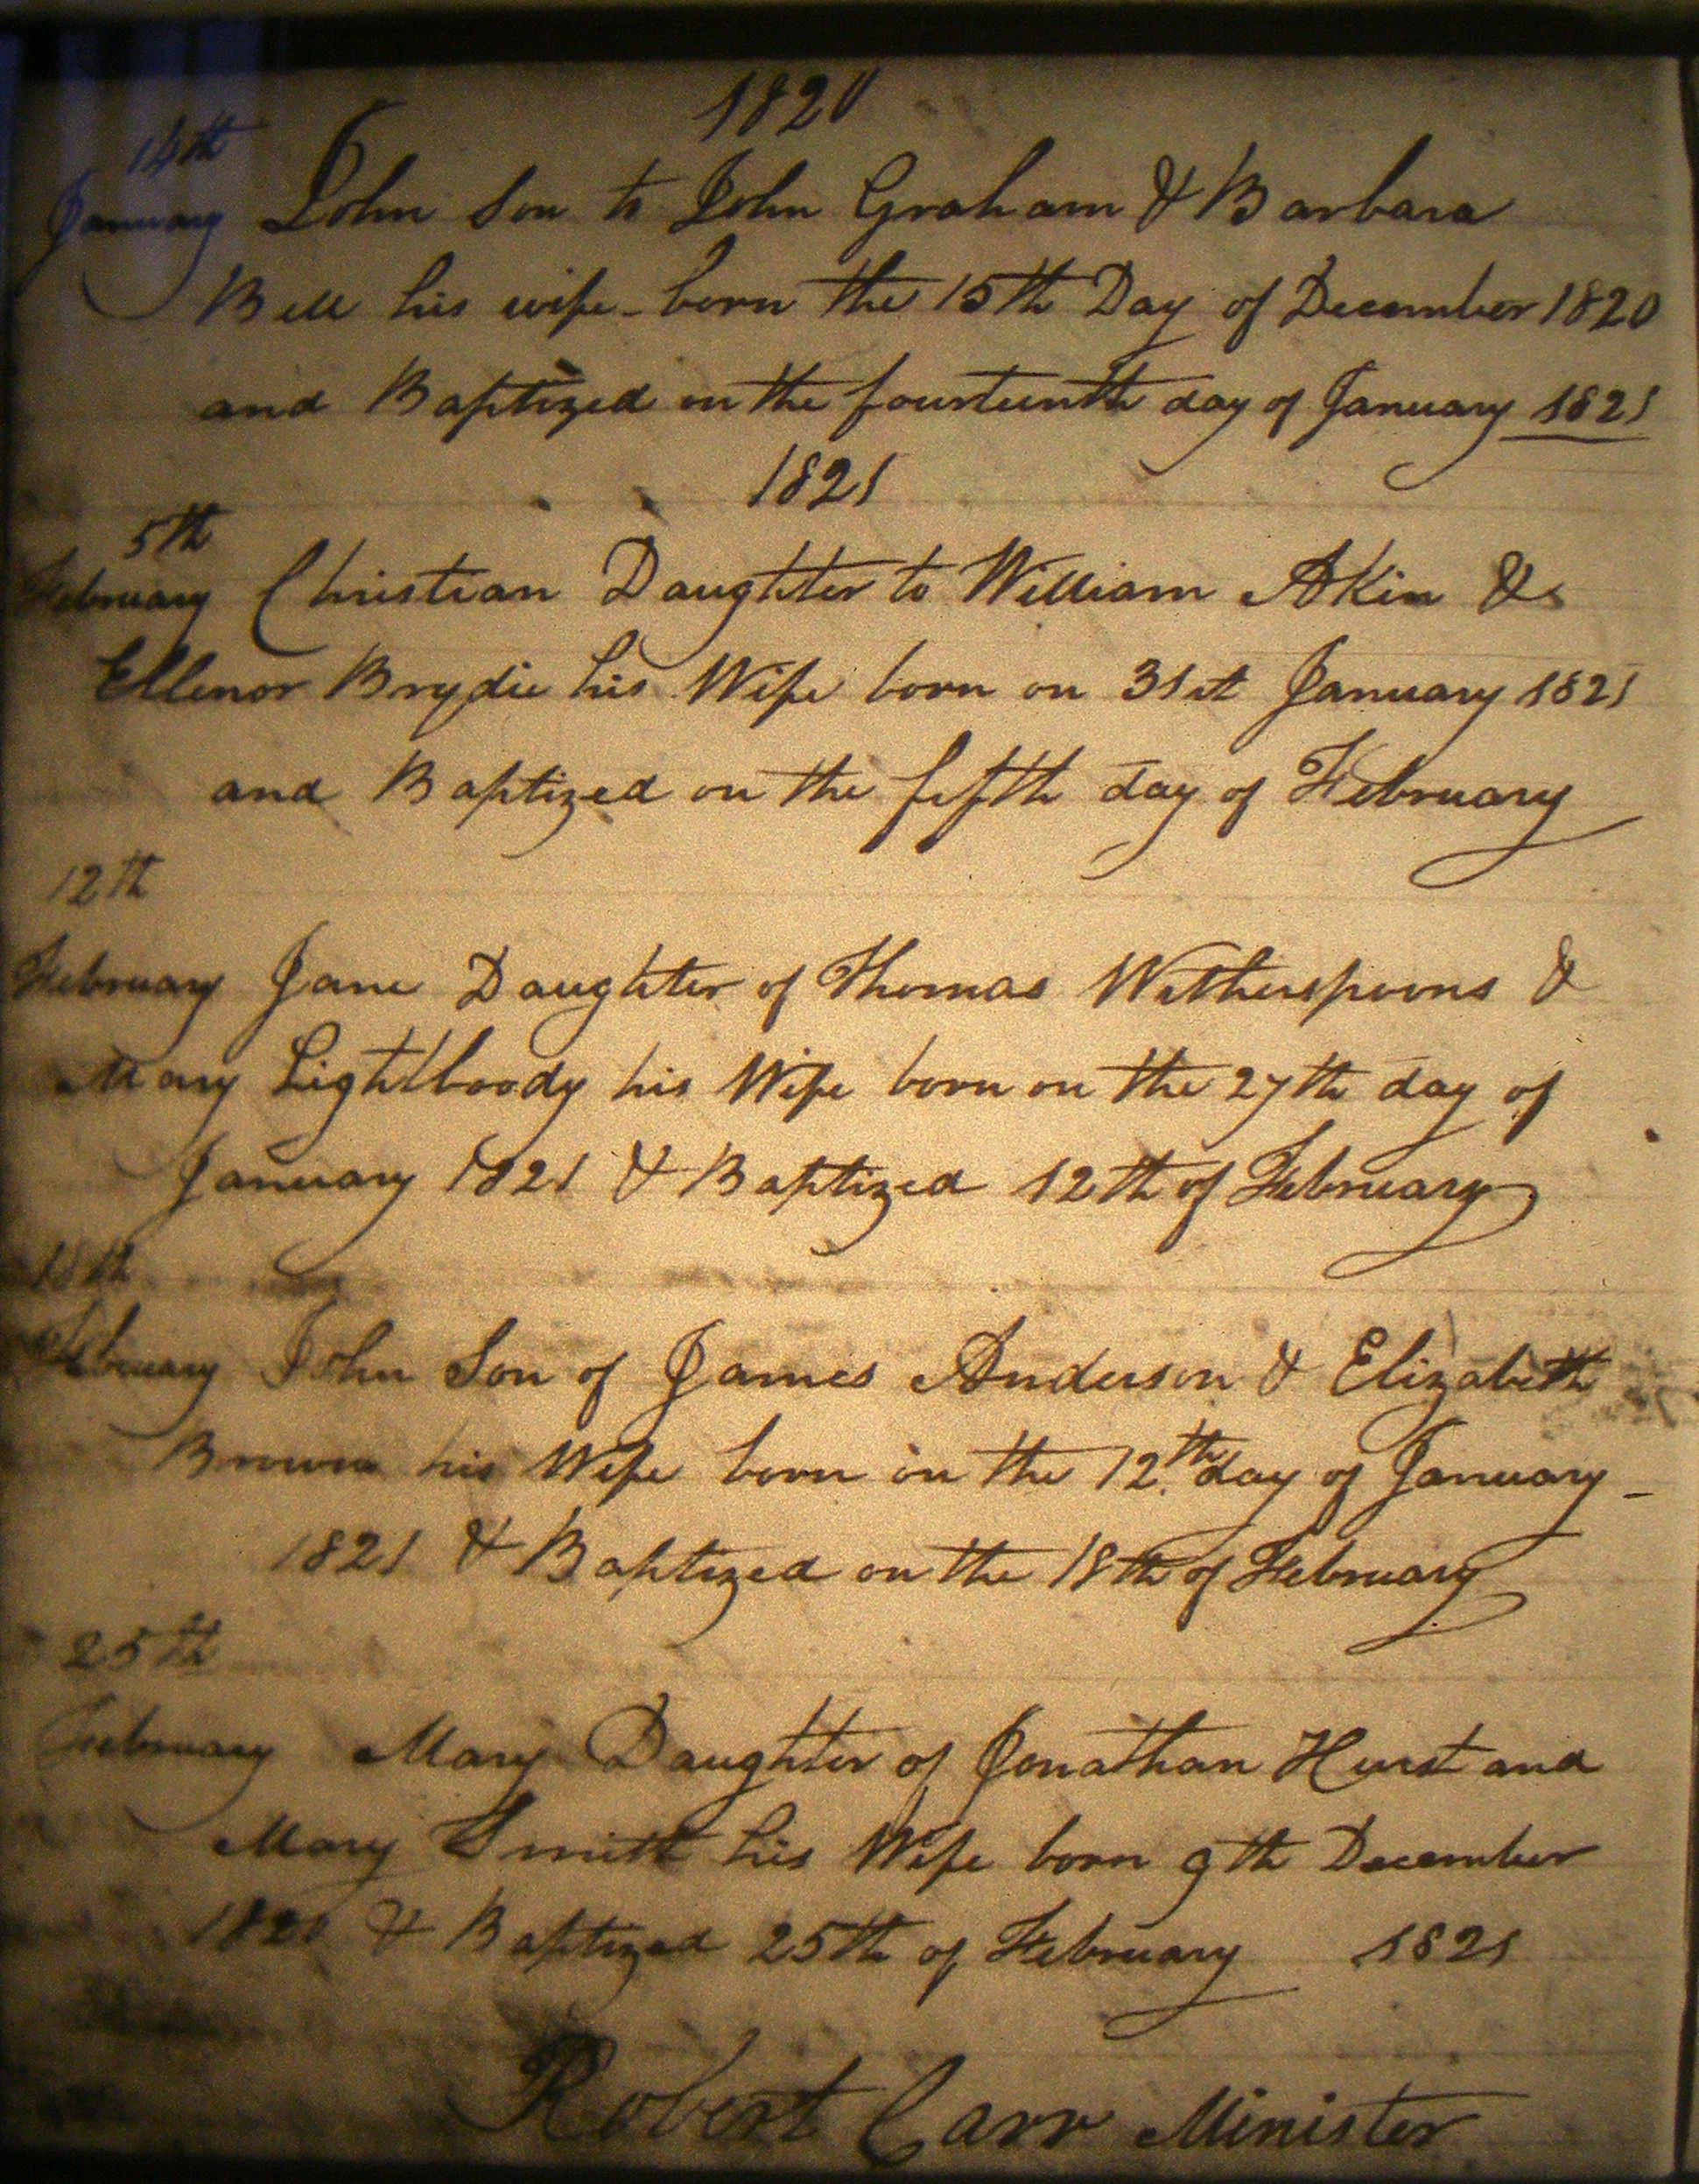 1820
14th
January John Son to John Graham & Barbara
Bell his wife - born the 15th Day of December 1820
and Baptized on the fourteenth day of January 1821
1821
5th
February Christian Daughter to William AKin &
Ellenor Brydie his Wife born on 31st January 1821
and Baptized on the fifth day of February
12th
February Jane Daughter of Thomas Witherspoons &
Mary Lightboody his Wife born on the 27th day of
January 1821 & Baptized 12th of February
18th
February John Son of James Anderson & Elizabeth
Brown his Wife born on the 12th day of January -
1821 & Baptized on the 18th of February
25th
February Mary Daughter of Jonathan Hurst and
Mary Smith his Wife born 9th December
1820 & Baptized 25th of February 1821
Robert Carr Minister